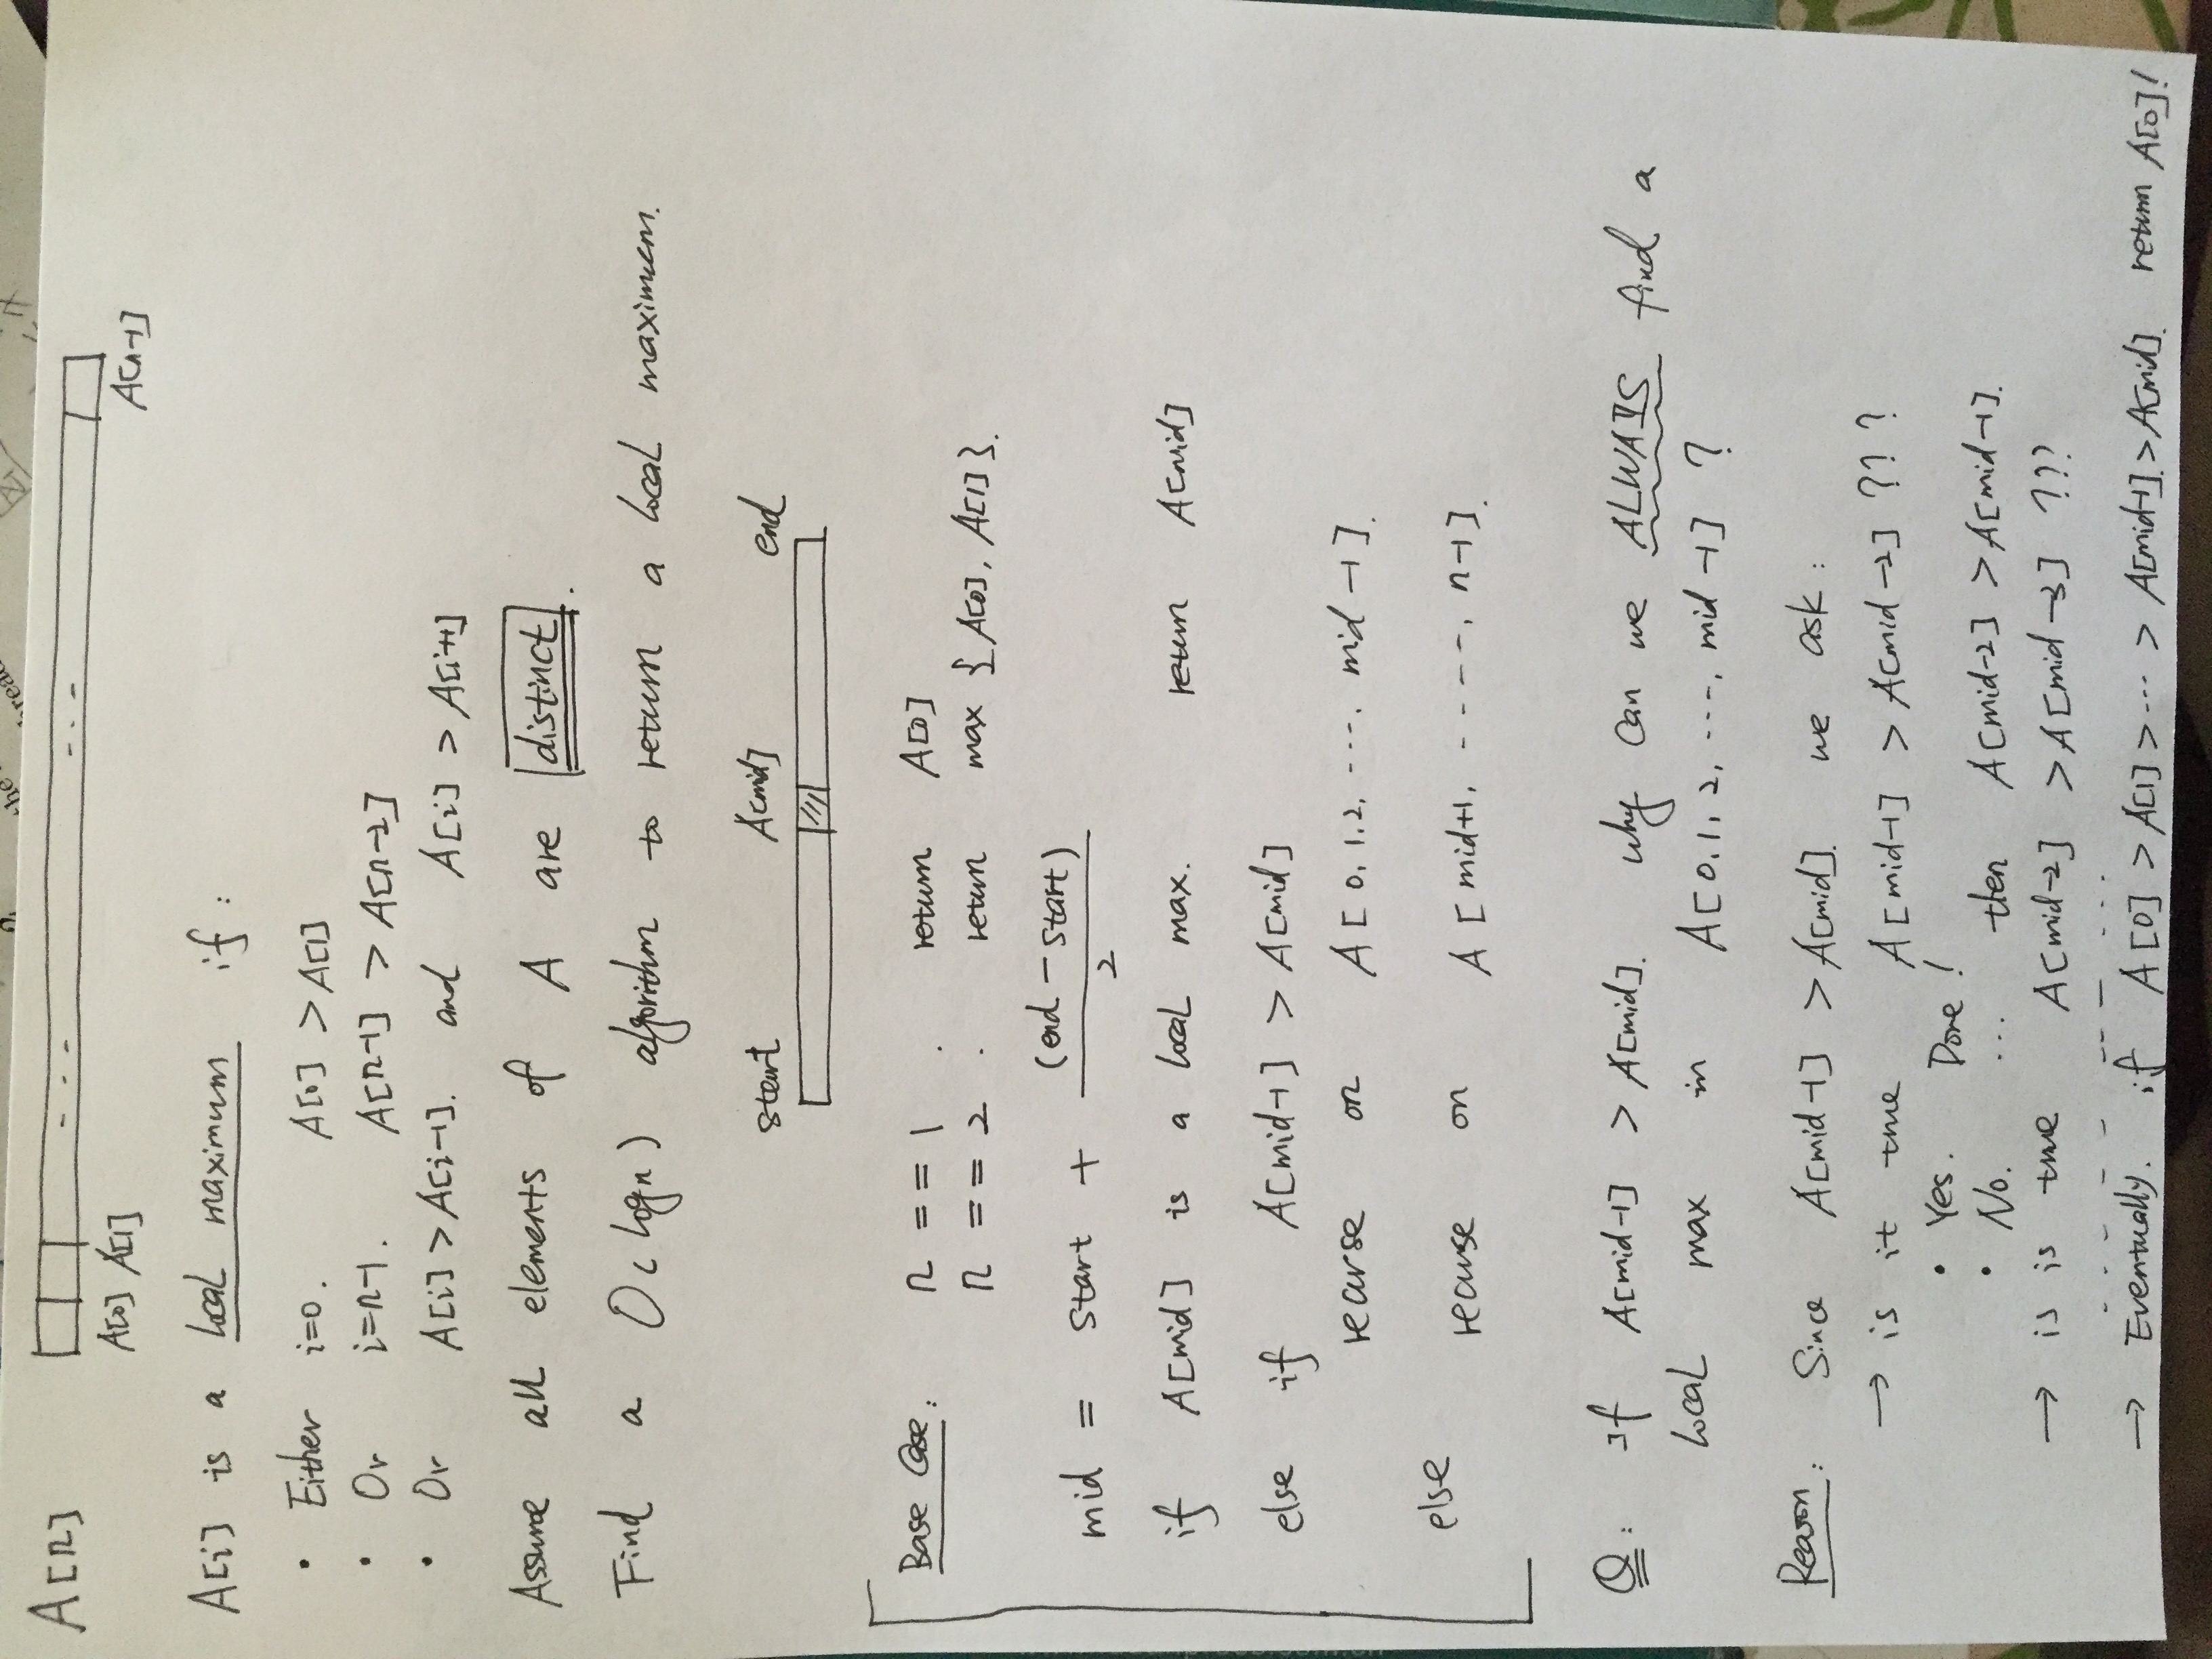 the
bread
A[n]
A[0] A[1] A[n-1]
A[i] is a local maximum if:
• Either i=0. A[0] > A[1]
• Or i=n-1. A[n-1] > A[n-2]
• Or A[i] > A[i-1]. and A[i] > A[i+1]
Assume all elements of A are distinct.
Find a O(logn) algorithm to return a local maximum.
start A[mid] end
Base Case: n == 1. return A[0]
n == 2. return max {A[0], A[1]}.
mid = start + (end - start)
2
if A[mid] is a local max. return A[mid]
else if A[mid-1] > A[mid]
recurse on A[0,1,2, ----, mid-1].
else
recurse on A[mid+1, -----, n-1].
Q: If A[mid-1] > A[mid]. why can we ALWAYS find a
local max in A[0,1,2, ----, mid-1] ?
Reason: Since A[mid-1] > A[mid]. we ask:
→ is it true A[mid-1] > A[mid-2] ???
• Yes. Done!
• No. ... then A[mid-2] > A[mid-1].
→ is is true A[mid-2] > A[mid-3] ???
→ Eventually. if A[0] > A[1] > --- > A[mid-1] > A[mid]. return A[0]!